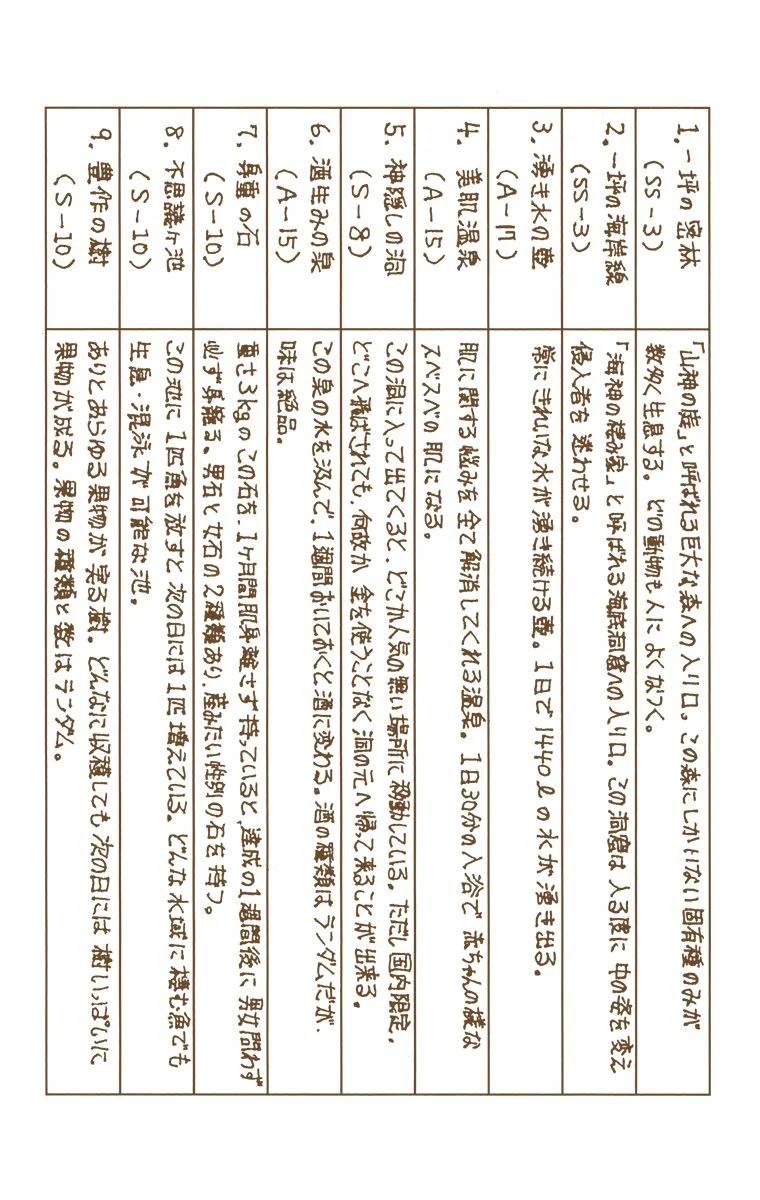 1. 一坪の密林
(SS-3)
「山神の庭」と呼ばれる巨大な森への入り口。この森にしかいない固有種のみが
数多く生息する。どの動物も人によくなつく。
2. 一坪の海岸線
(SS-3)
「海神の棲み家」と呼ばれる海底洞窟への入り口。この洞窟は入る度に中の姿を変え
侵入者を迷わせる。
3. 湧き水の壺
(A-17)
常にきれいな水が湧き続ける壺。1日で1440ℓの水が湧き出る。
4. 美肌温泉
(A-15)
肌に関する悩みを全て解消してくれる温泉。1日30分の入浴で赤ちゃんの様な
スベスベの肌になる。
5. 神隠しの洞
(S-8)
この洞に入って出てくると、どこか人気の無い場所に移動している。ただし国内限定。
どこへ飛ばされても、何故か金を使うことなく洞の元へ帰って来ることが出来る。
6. 酒生みの泉
(A-15)
この泉の水を汲んで、1週間おいておくと酒に変わる。酒の種類はランダムだが、
味は絶品。
7. 身重の石
(S-10)
重さ3kgのこの石を、1ヶ月間肌身離さず持っていると、達成の1週間後に男女問わず
必ず身籠る。男石と女石の2種類あり、産みたい性別の石を持つ。
8. 不思議ヶ池
(S-10)
この池に1匹魚を放すと次の日には1匹増えている。どんな水域に棲む魚でも
生息・混泳が可能な池。
9. 豊作の樹
(S-10)
ありとあらゆる果物が実る樹。どんなに収穫しても次の日には樹いっぱいに
果物が成る。果物の種類と数はランダム。